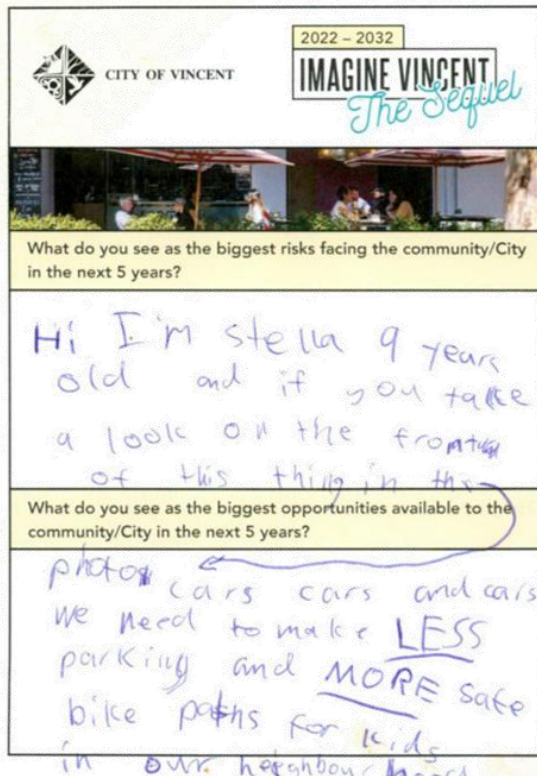 CITY OF VINCENT
2022 – 2032
IMAGINE VINCENT
The Sequel
What do you see as the biggest risks facing the community/City
in the next 5 years?
Hi I'm stella 9 years
old and if you take
a look on the front
of this thing in the
What do you see as the biggest opportunities available to the
community/City in the next 5 years?
photos cars cars and cars
we need to make LESS
parking and MORE safe
bike paths for kids
in our